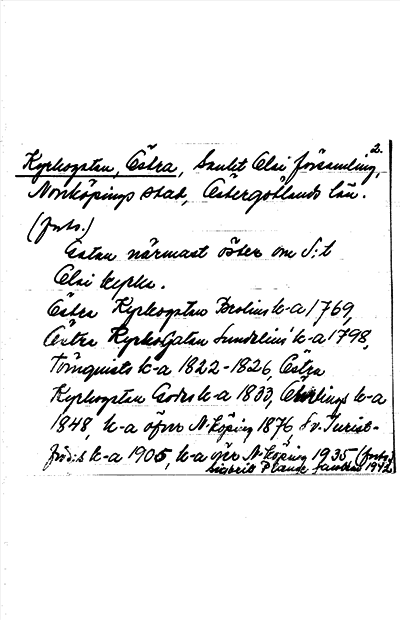 2.
Kyrkogatan, Östra, Sankt Olai församling,
Norrköpings stad, Östergötlands län.
(forts.)
Gatan närmast öster om S:t
Olai kyrka.
Östra Kyrkogatan Brolins k-a 1769,
Östra KyrkoGatan Sundelius' k-a 1798,
Törnquists k-a 1822-1826, Östra
Kyrkogatan Godes k-a 1833, k-a
1848, k-a öfver N-köping 1876 Sv. Turist-
för:s k-a 1905, k-a över N-köping 1935 (forts.)
Sigfrid 1942